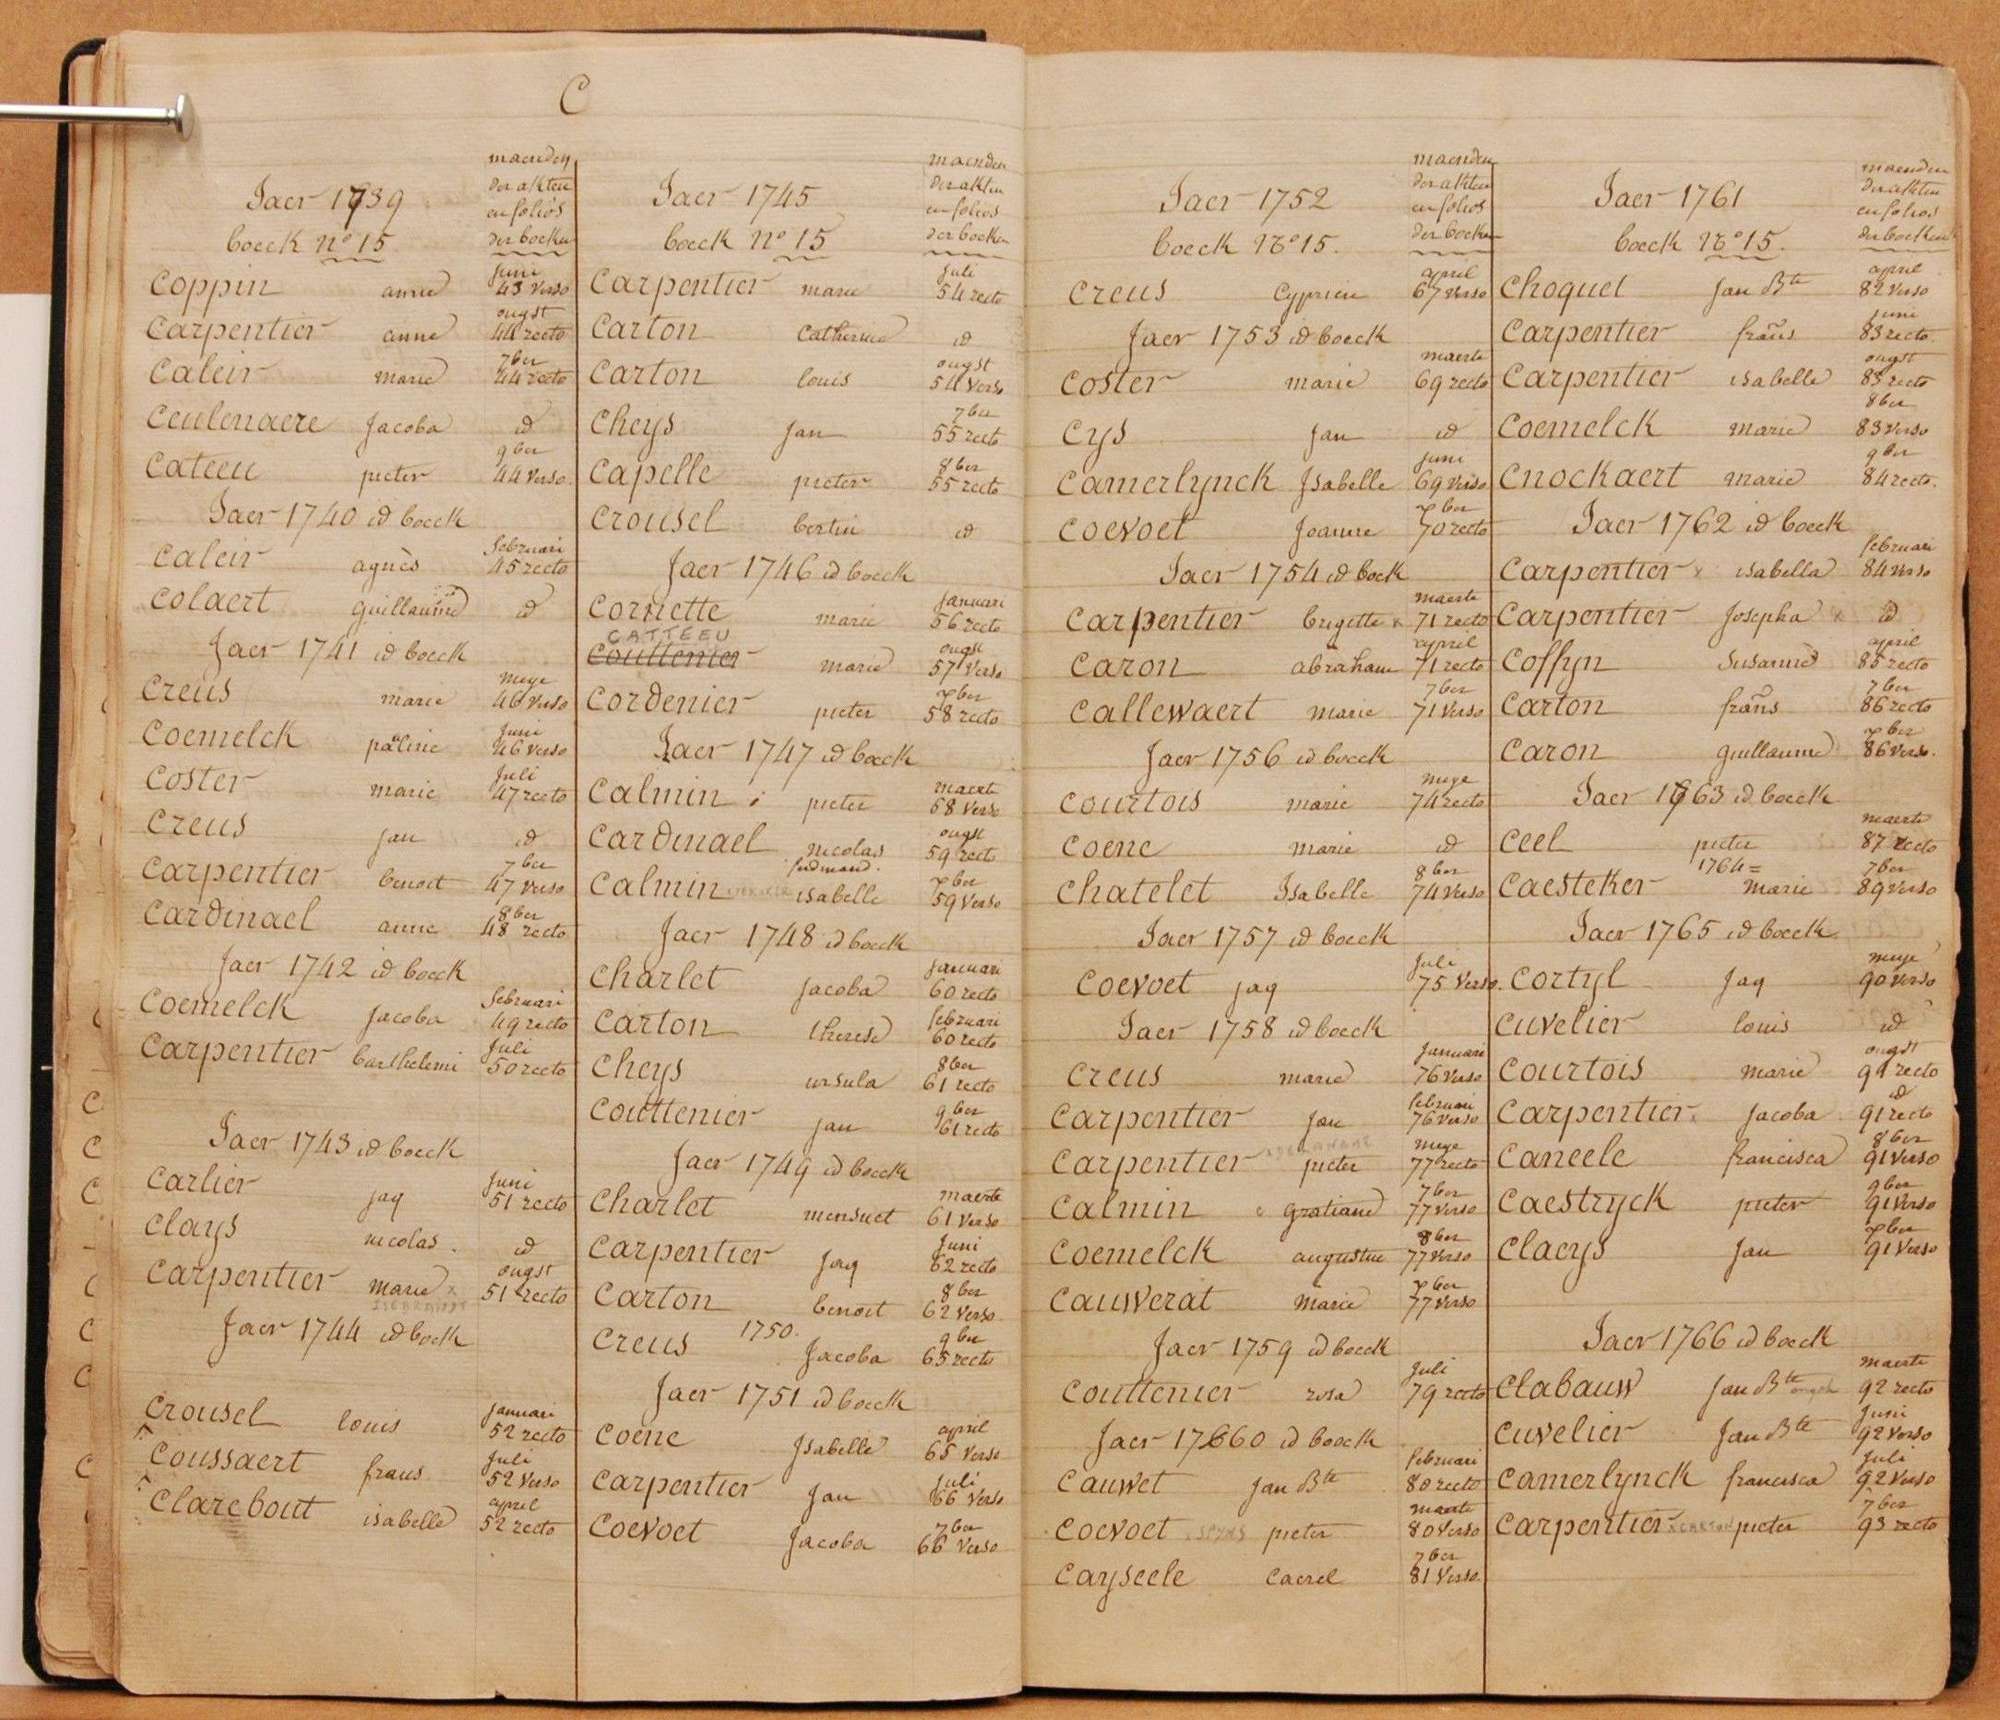 C
Jaer 1739
boeck n° 15
maenden
der akten
en folios
der boeken
Coppin anne juni 43 verso
Carpentier anne ougst 44 recto
Caleir marie 7ber 44 recto
Ceulenaere Jacoba id
Cateeu pieter 9ber 44 verso
Jaer 1740 id boeck
Caleir agnès februari 45 recto
Colaert guillaume id
Jaer 1741 id boeck
Creus marie meye 46 verso
Coemelck paline juni 46 verso
Coster marie juli 47 recto
Creus jan id
Carpentier benoit 7ber 47 verso
Cardinael anne 8ber 48 recto
Jaer 1742 id boeck
Coemelck jacoba februari 49 recto
Carpentier barthelemi juli 50 recto
Jaer 1743 id boeck
Carlier jaq juni 51 recto
Clays nicolas id
Carpentier marie x ougst 51 recto
Jaer 1744 id boeck
Crousel louis januari 52 recto
Coussaert frans juli 52 verso
Clarebout isabelle april 52 recto
Jaer 1745
boeck n° 15
maenden
der akten
en folios
der boeken
Carpentier marie juli 54 recto
Carton catherine id
Carton louis ougst 54 verso
Cheys jan 7ber 55 recto
Capelle pieter 8ber 55 recto
Crousel bertin id
Jaer 1746 id boeck
Cornette marie januari 56 recto
CATTEEU
Couttenier marie ougst 57 verso
Cordenier pieter xber 58 recto
Jaer 1747 id boeck
Calmin pieter maerte 58 verso
Cardinael nicolas ferdinand. ougst 59 recto
Calmin isabelle xber 59 verso
Jaer 1748 id boeck
Charlet jacoba januari 60 recto
Carton therese februari 60 recto
Cheys ursula 8ber 61 recto
Couttenier jan 9ber 61 recto
Jaer 1749 id boeck
Charlet mensuet maerte 61 verso
Carpentier jaq juni 62 recto
Carton benoit 8ber 62 verso
1750.
Creus jacoba 9ber 65 recto
Jaer 1751 id boeck
Coene Isabelle april 65 verso
Carpentier jan juli 66 verso
Coevoet jacoba 7ber 66 verso
Jaer 1752
boeck n° 15.
maenden
der akten
en folios
der boeken
Creus Cyprien april 67 verso
Jaer 1753 id boeck
Coster marie maerte 69 recto
Cys jan id
Camerlynck Isabelle juni 69 verso
Coevoet joanne xber 70 recto
Jaer 1754 id boeck
Carpentier brigitte x maerte 71 recto
Caron abraham april 71 recto
Callewaert marie 7ber 71 verso
Jaer 1756 id boeck
Courtois marie meye 74 recto
Coene marie id
Chatelet Isabelle 8ber 74 verso
Jaer 1757 id boeck
Coevoet jaq juli 75 verso.
Jaer 1758 id boeck
Creus marie januari 76 verso
Carpentier jan februari 76 verso
Carpentier pieter meye 77 recto
Calmin gratiane 7ber 77 verso
Coemelck augustine 8ber 77 verso
Cauwerat marie xber 77 verso
Jaer 1759 id boeck
Couttenier rosa juli 79 recto
Jaer 17660 id boeck
Cauwet jan Bte februari 80 recto
Coevoet pieter maerte 80 verso
Cayseele Caerel 7ber 81 verso
Jaer 1761
boeck n° 15.
maenden
der akten
en folios
der boeken
Choquel jan Bte april 82 verso
Carpentier frans juni 83 recto
Carpentier isabelle ougst 83 recto
Coemelck marie 8ber 83 verso
Cnockaert marie 9ber 84 recto.
Jaer 1762 id boeck
Carpentier x isabella februari 84 verso
Carpentier josepha x id
Coffyn susanne april 85 recto
Carton frans 7ber 86 recto
Caron guillaume xber 86 verso.
Jaer 1763 id boeck
Ceel pieter maerte 87 recto
1764=
Caesteker marie 7ber 89 verso
Jaer 1765 id boeck
Cortyl jaq meye 90 verso
Cuvelier louis id
Courtois marie ougst 91 recto
Carpentier x jacoba id 91 recto
Caneele francisca 8ber 91 verso
Caestryck pieter 9ber 91 verso
Claeys jan xber 91 verso
Jaer 1766 id boeck
Clabauw jan Bte maerte 92 recto
Cuvelier jan Bte juni 92 verso
Camerlynck francisca juli 92 verso
Carpentier x CARTON pieter 7ber 93 recto